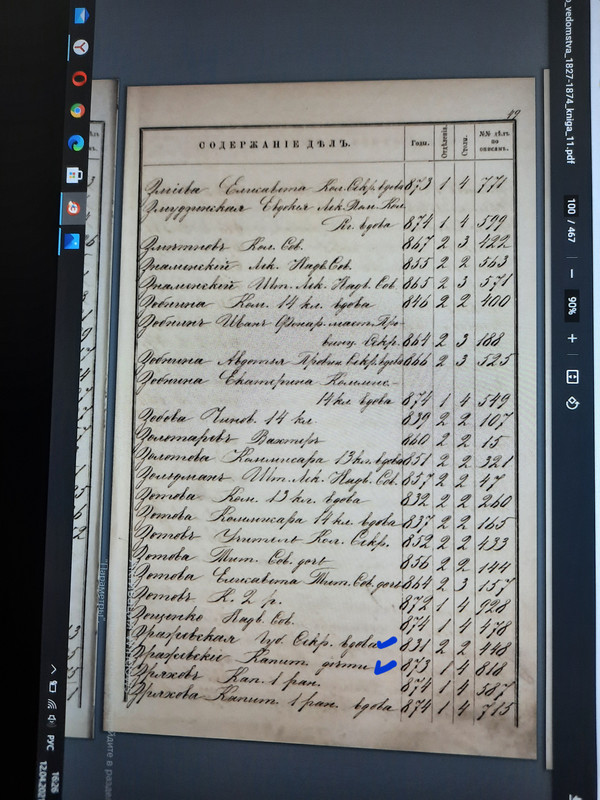 49
СОДЕРЖАНІЕ ДѢЛЪ.
Годы.
Отдѣленія.
Столы.
№№ дѣлъ по описямъ.
Елисавета Кол. Секр. вдова 873 1 4 771
Змудзинская Евдокія Лѣк. Пом. Кол.
Рег. вдова 874 1 4 599
Кол. Сов. 867 2 3 422
Знаменскій Лѣк. Надв. Сов. 855 2 2 563
Знаменскій Шт. Лѣк. Надв. Сов. 865 2 3 571
Зобнина Ком. 14 кл. вдова 846 2 2 400
Зобнинъ Иванъ Фонар. маст. Про-
винц. Секр. 864 2 3 188
Зобнина Авдотья Провин. Секр. вдова 866 2 3 525
Зобнина Екатерина Коммис-
14 кл. вдова 874 1 4 549
Зобова Чинов. 14 кл. 839 2 2 107
Золотаревъ Вахтеръ 860 2 2 15
Золотова Коммисара 13 кл. вдова 851 2 2 321
Зольдманъ Шт. Лѣк. Надв. Сов. 837 2 2 47
Зотова Ком. 13 кл. вдова 832 2 2 260
Зотова Коммисара 14 кл. вдова 837 2 2 165
Зотовъ Учитель Кол. Секр. 852 2 2 433
Зотова Тит. Сов. дочь 856 2 2 144
Зотова Елисавета Тит. Сов. дочь 864 2 3 157
Зотовъ К. 2 р. 872 1 4 928
Зощенко Надв. Сов. 874 1 4 478
Зражевская Губ. Секр. вдова 831 2 2 448
Зражевскій Капит. дѣти 873 1 4 818
Зряховъ Кап. 1 ран. 874 1 4 587
Зряхова Капит. 1 ран. вдова 874 1 4 715
_vedomstva_1827-1874_kniga_11.pdf
100 / 467
90%
"Параметры"
РУС
16:26